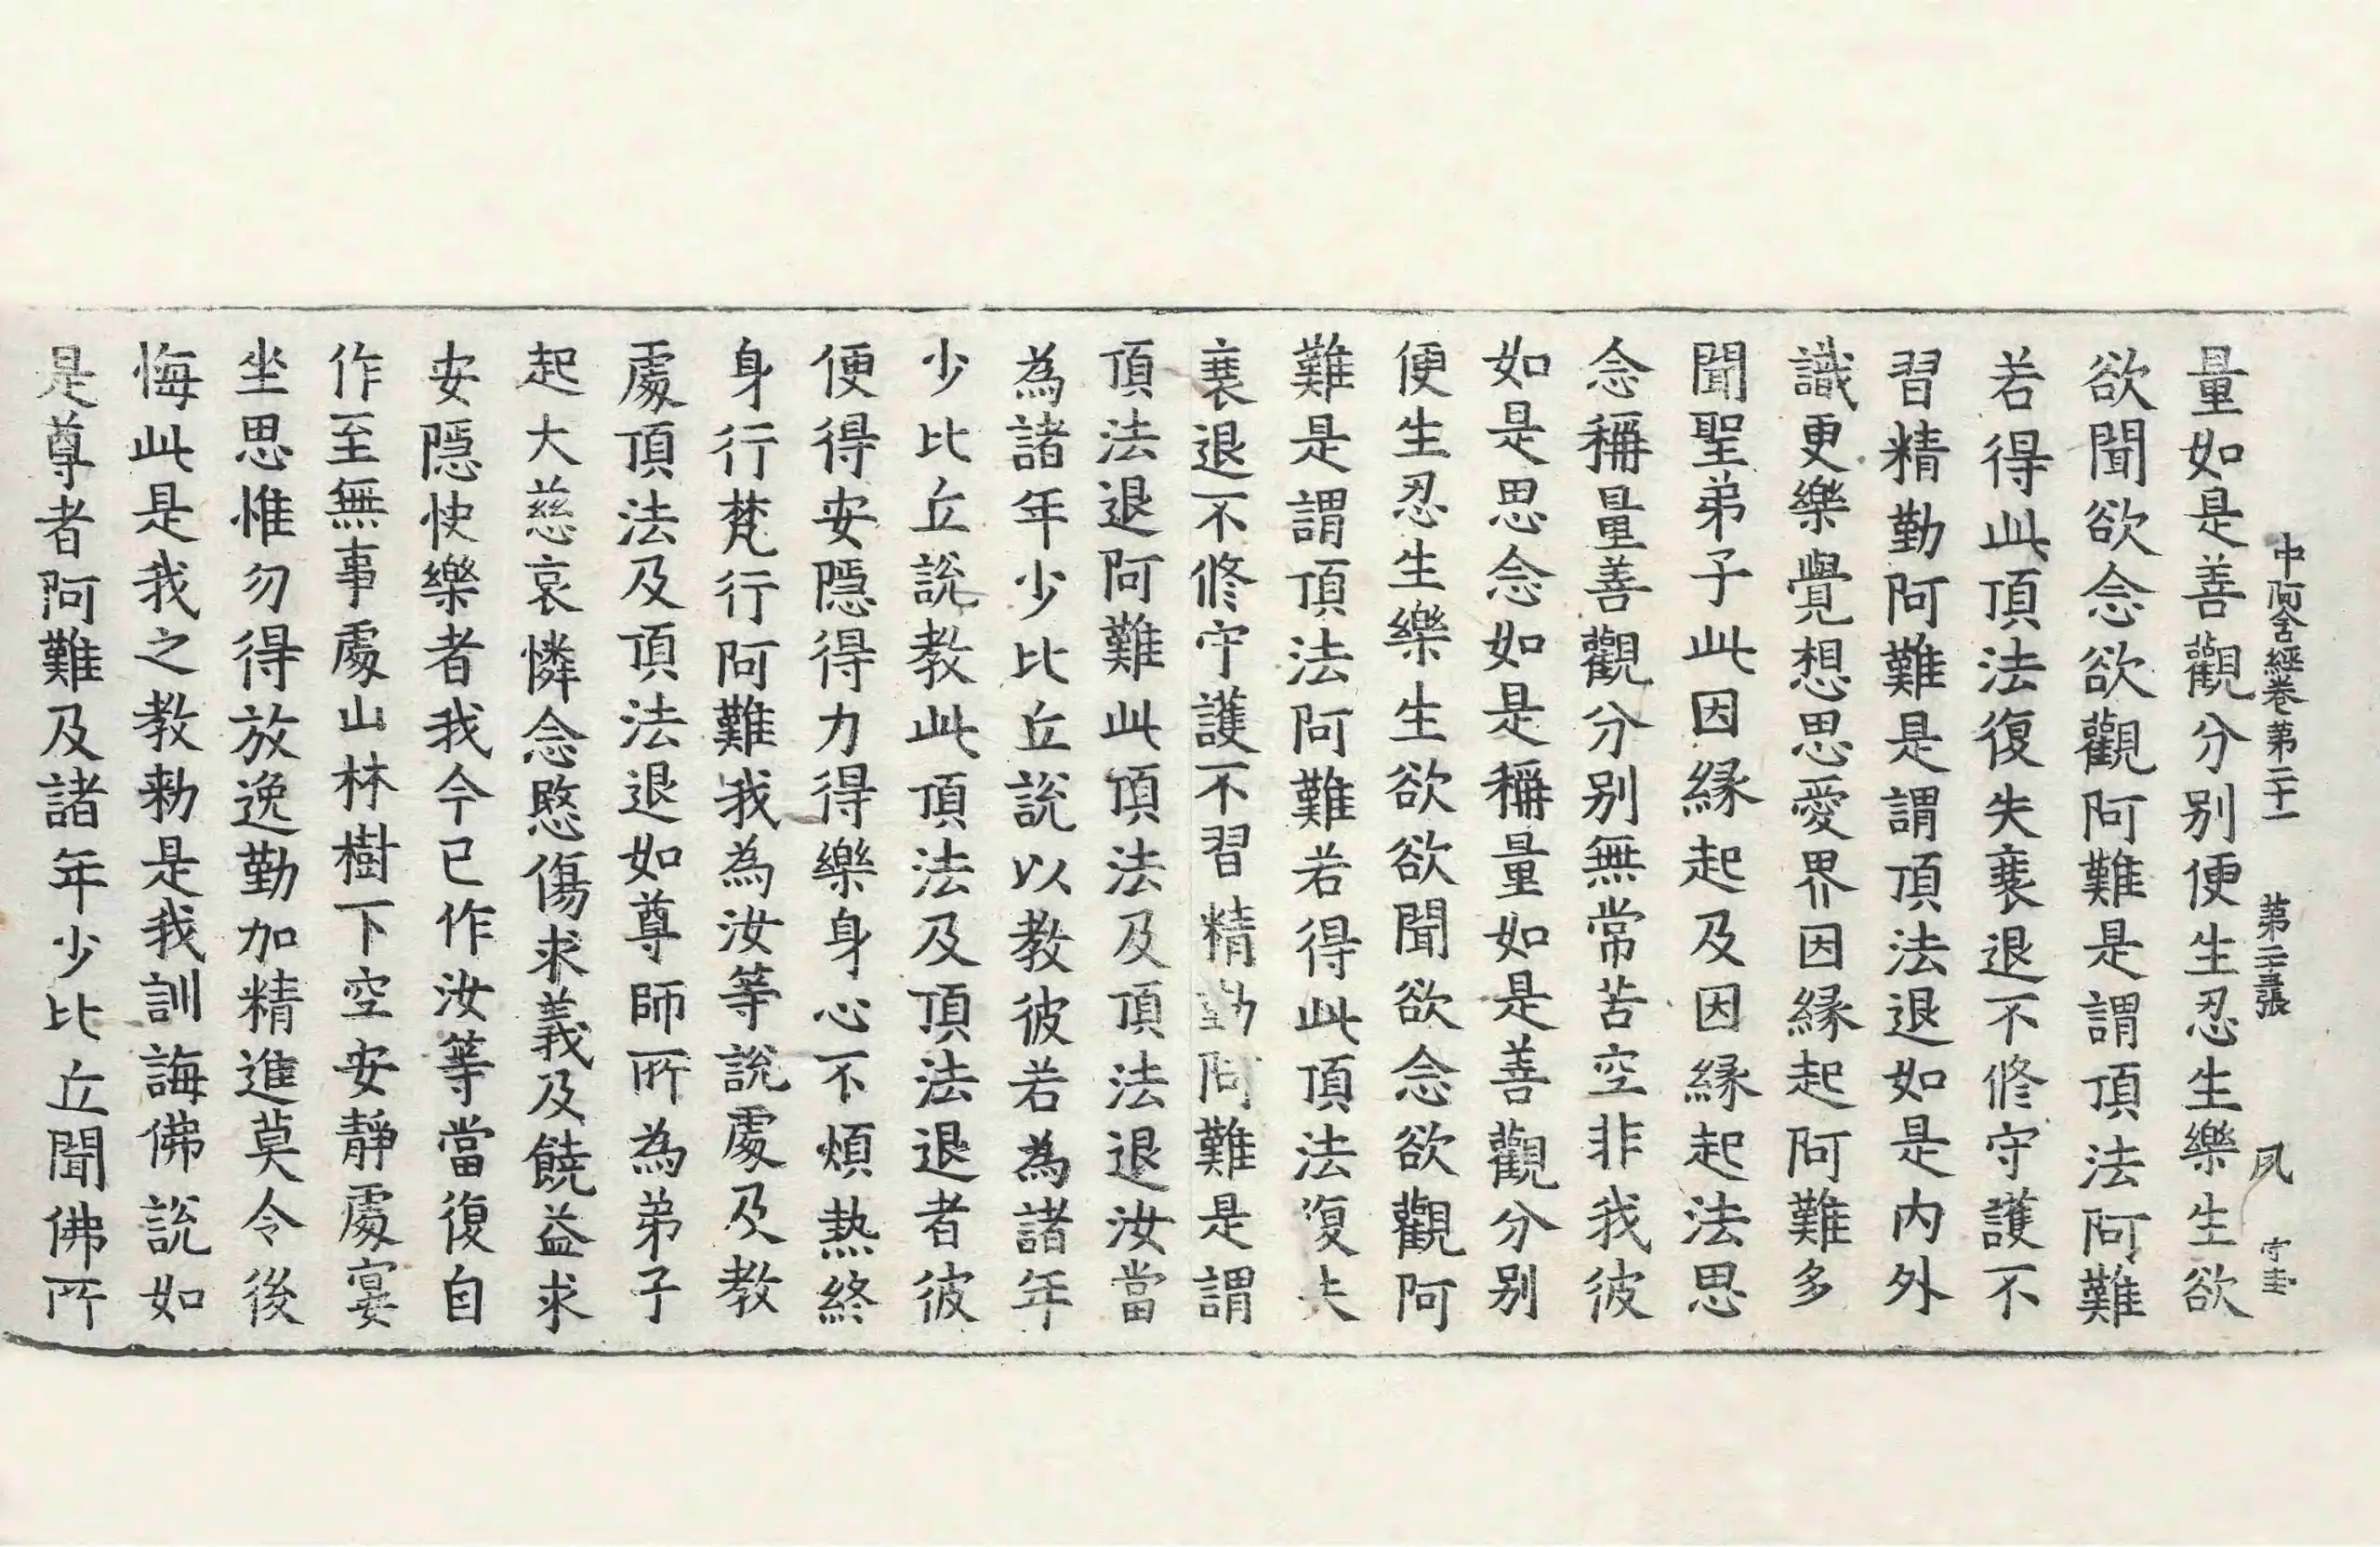 中阿含經卷第二十一 第二十三張 夙 守圭
量如是善觀分别便生忍生樂生欲
欲聞欲念欲觀阿難是謂頂法阿難
若得此頂法復失衰退不修守護不
習精勤阿難是謂頂法退如是内外
識更樂覺想思愛界因緣起阿難多
聞聖弟子此因緣起及因緣起法思
念稱量善觀分别無常苦空非我彼
如是思念如是稱量如是善觀分别
便生忍生樂生欲欲聞欲念欲觀阿
難是謂頂法阿難若得此頂法復失
衰退不修守護不習精勤阿難是謂
頂法退阿難此頂法及頂法退汝當
為諸年少比丘說以教彼若為諸年
少比丘說教此頂法及頂法退者彼
便得安隱得力得樂身心不煩熱終
身行梵行阿難我為汝等說處及教
處頂法及頂法退如尊師所為弟子
起大慈哀憐念愍傷求義及饒益求
安隱快樂者我今已作汝等當復自
作至無事處山林樹下空安靜處宴
坐思惟勿得放逸勤加精進莫令後
悔此是我之教勑是我訓誨佛說如
是尊者阿難及諸年少比丘聞佛所